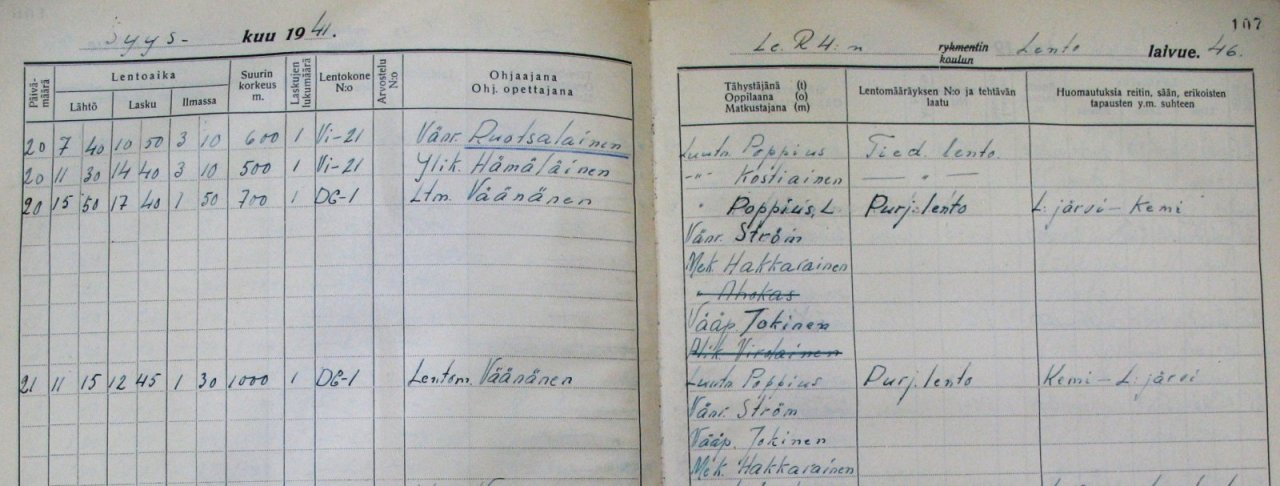 Syys- kuu 1941.
Päivä-määrä
Lentoaika
Lähtö Lasku Ilmassa
Suurin korkeus m.
Laskujen lukumäärä
Lentokone N:o
Arvostelu N:o
Ohjaajana
Ohj. opettajana
20 7 40 10 50 3 10 600 1 Vi-21 Vänr. Ruotsalainen
20 11 30 14 40 3 10 500 1 Vi-21 Ylik. Hämäläinen
20 15 50 17 40 1 50 700 1 DC-1 Ltm. Väänänen
21 11 15 12 45 1 30 1000 1 DC-1 Lentom. Väänänen
107
Le. R 4:n rykmentin Lento laivue. 46.
koulun
Tähystäjänä (t)
Oppilaana (o)
Matkustajana (m)
Lentomääräyksen N:o ja tehtävän laatu
Huomautuksia reitin, sään, erikoisten tapausten y.m. suhteen
Luutn. Poppius Tied. lento.
-"- Kostiainen — " —
" Poppius, L. Purj. lento L. järvi - Kemi
Vänr. Ström
Mek. Hakkarainen
" Ahokas
Vääp. Jokinen
Alik. Virolainen
Luutn. Poppius Purj. lento Kemi - L. järvi
Vänr. Ström
Vääp. Jokinen
Mek. Hakkarainen